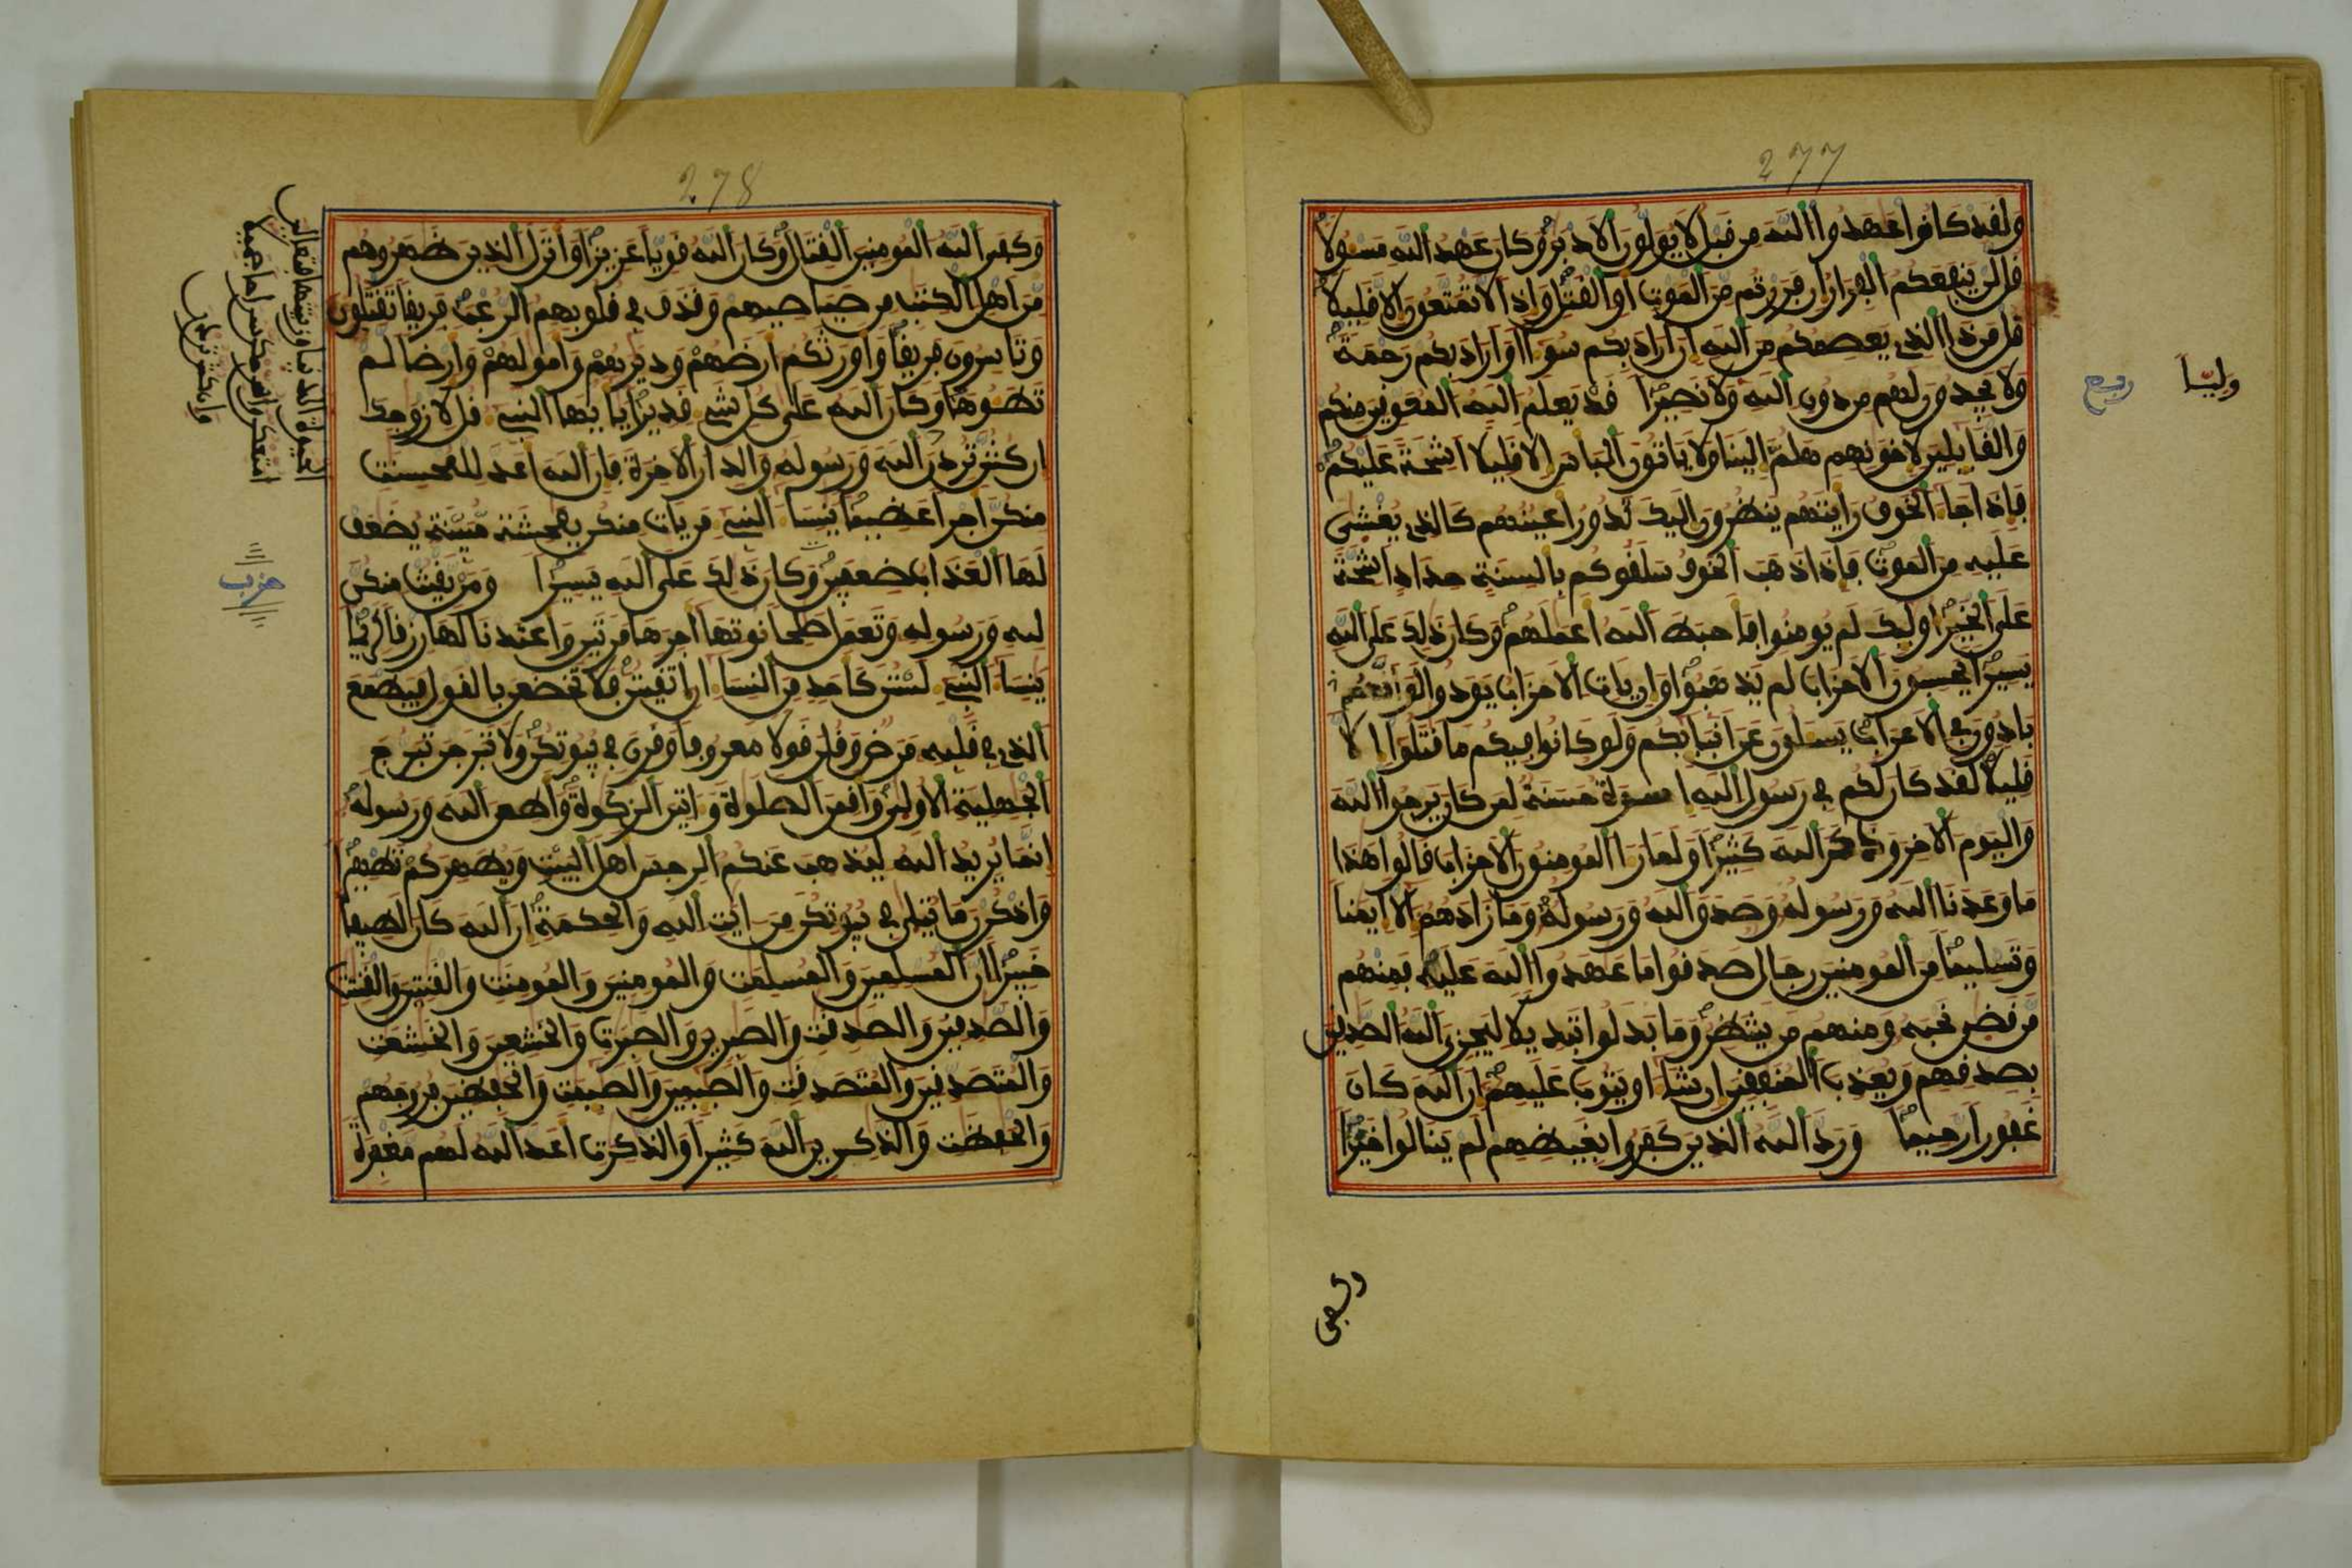 277
ولقد كانوا عهدوا الله من قبل لا يولون الادبر وكان عهد الله مسولا
قل لن ينفعكم الفرار ان فررتم من الموت او القتل واذا لا تمتعون الا قليلا
قل من ذا الذي يعصمكم من الله ان اراد بكم سوا او اراد بكم رحمة
ولا يجدون لهم من دون الله وليا ولا نصيرا قد يعلم الله المعوقين منكم
والقايلين لاخونهم هلم الينا ولا ياتون الباس الا قليلا اشحة عليكم
فاذا جا الخوف رايتهم ينظرون اليك تدور اعينهم كالذي يغشى
عليه من الموت فاذا ذهب الخوف سلقوكم بالسنة حداد اشحة
على الخير اوليك لم يومنوا فاحبط الله اعملهم وكان ذلك على الله
يسيرا يحسبون الاحزاب لم يذهبوا وان يات الاحزاب يودوا لو انهم
بادون في الاعراب يسلون عن انبايكم ولو كانوا فيكم ما قتلوا الا
قليلا لقد كان لكم في رسول الله اسوة حسنة لمن كان يرجوا الله
واليوم الاخر وذكر الله كثيرا ولما را المومنون الاحزاب قالوا هذا
ما وعدنا الله ورسوله وصدق الله ورسوله وما زادهم الا ايمنا
وتسليما من المومنين رجال صدقوا ما عهدوا الله عليه فمنهم
من قضى نحبه ومنهم من ينتظر وما بدلوا تبديلا ليجزي الله الصدقين
بصدقهم ويعذب المنفقين ان شا او يتوب عليهم ان الله كان
غفورا رحيما ورد الله الذين كفروا بغيظهم لم ينالوا خيرا
وليا
ربع
وكفى
278
وكفى الله المومنين القتال وكان الله قويا عزيزا وانزل الذين ظهروهم
من اهل الكتب من صياصيهم وقذف في قلوبهم الرعب فريقا تقتلون
وتاسرون فريقا واورثكم ارضهم وديرهم وامولهم وارضا لم
تطوها وكان الله على كل شي قديرا يايها النبي قل لازوجك
ان كنتن تردن الله ورسوله والدار الاخرة فان الله اعد للمحسنت
منكن اجرا عظيما ينسا النبي من يات منكن بفحشة مبينة يضعف
لها العذاب ضعفين وكان ذلك على الله يسيرا ومن يقنت منكن
لله ورسوله وتعمل صلحا نوتها اجرها مرتين واعتدنا لها رزقا كريما
ينسا النبي لستن كاحد من النسا ان اتقيتن فلا تخضعن بالقول فيطمع
الذي في قلبه مرض وقلن قولا معروفا وقرن في بيوتكن ولا تبرجن تبرج
الجهلية الاولى واقمن الصلوة واتين الزكوة واطعن الله ورسوله
انما يريد الله ليذهب عنكم الرجس اهل البيت ويطهركم تطهيرا
واذكرن ما يتلى في بيوتكن من ايت الله والحكمة ان الله كان لطيفا
خبيرا ان المسلمين والمسلمت والمومنين والمومنت والقنتين والقنتت
والصدقين والصدقت والصبرين والصبرت والخشعين والخشعت
والمتصدقين والمتصدقت والصيمين والصيمت والحفظين فروجهم
والحفظت والذكرين الله كثيرا والذكرت اعد الله لهم مغفرة
الحيوة الدنيا وزينتها فتعالين
امتعكن واسرحكن سراحا جميلا
وان كنتن تردن
حزب